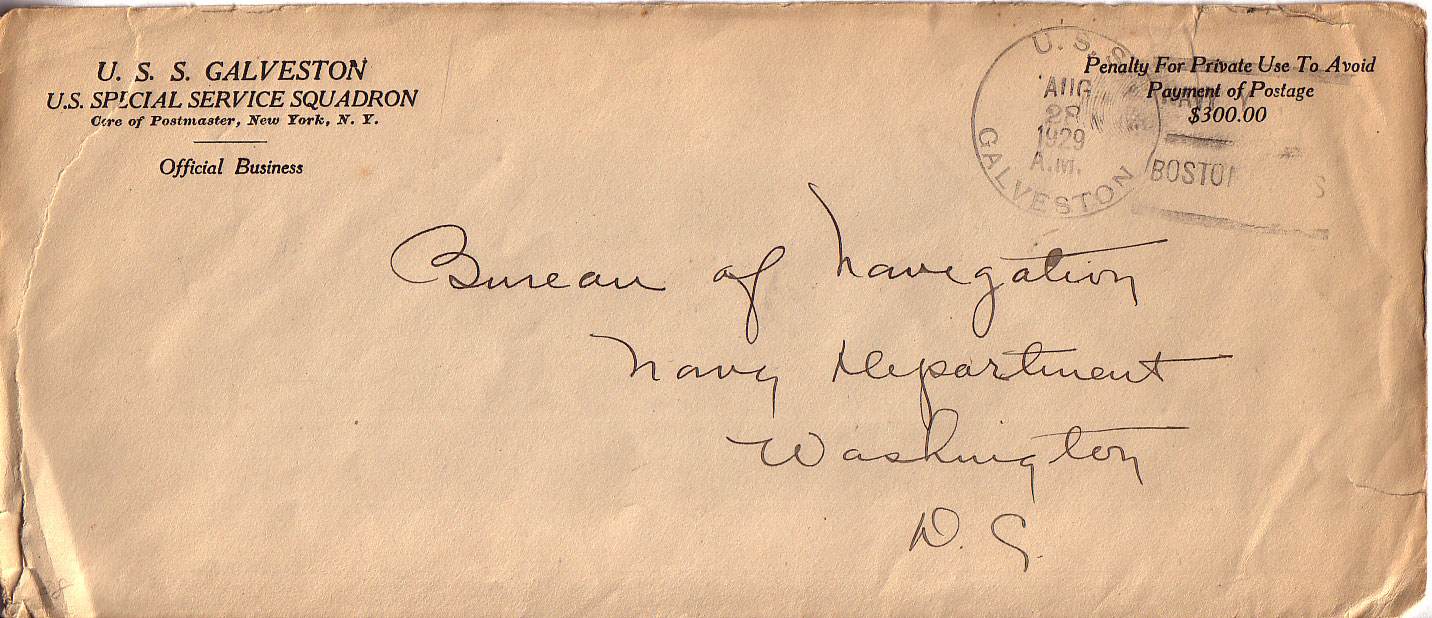 U. S. S. GALVESTON
U.S. SPECIAL SERVICE SQUADRON
Care of Postmaster, New York, N. Y.
Official Business
Penalty For Private Use To Avoid
Payment of Postage
$300.00
U. S. S.
GALVESTON
AUG
28
1929
A.M.
Bureau of Navigation
Navy Department
Washington
D. C.